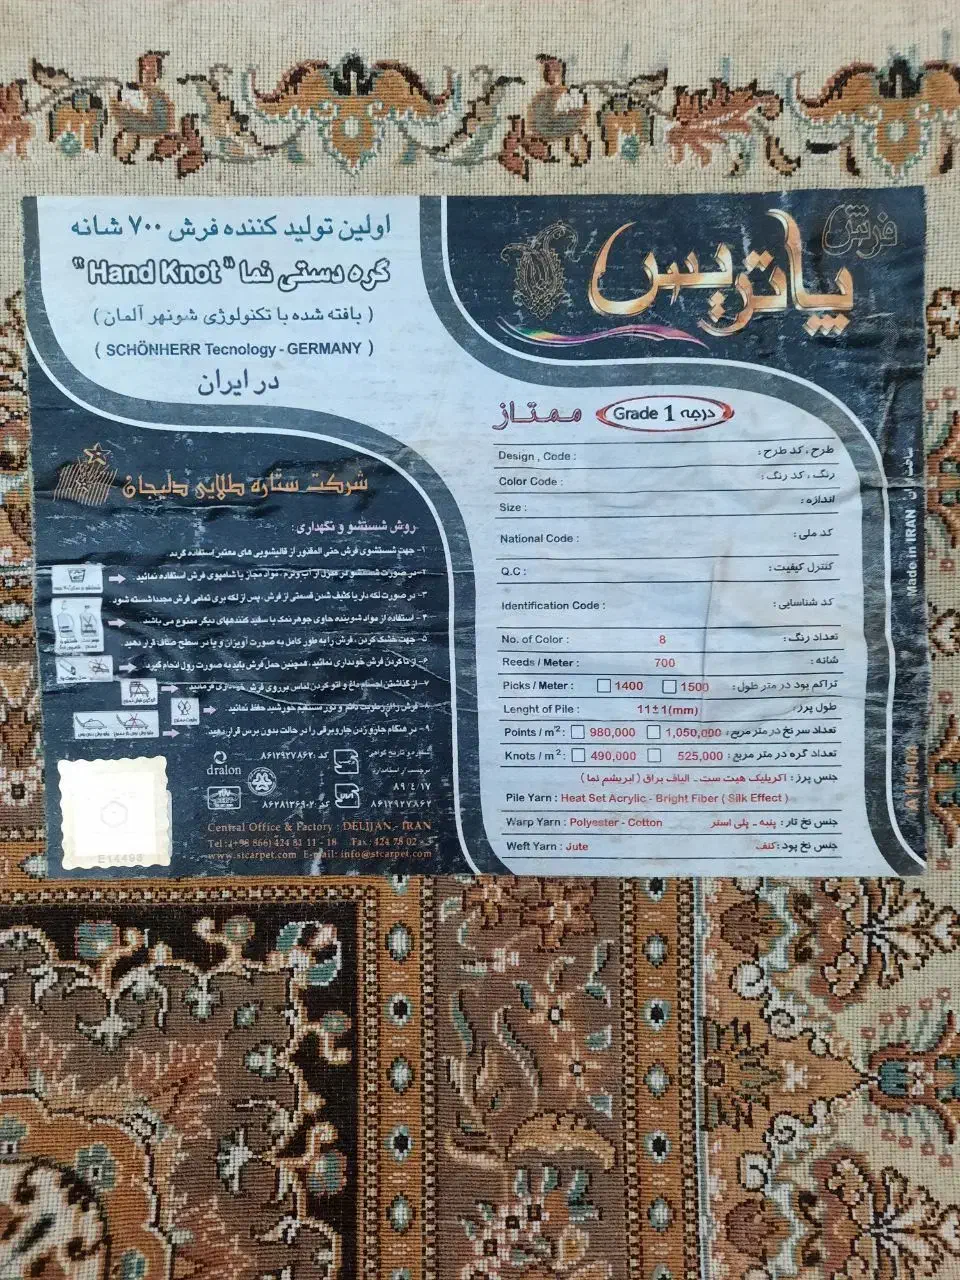 اولین تولید کننده فرش ۷۰۰ شانه
گره دستی نما "Hand Knot"
( بافته شده با تکنولوژی شونهر آلمان )
( SCHÖNHERR Tecnology - GERMANY )
در ایران
فرش
پاتریس
درجه 1 Grade ممتاز
Design , Code : طرح ، کد طرح :
Color Code : رنگ ، کد رنگ :
Size : اندازه :
National Code : کد ملی :
Q.C : کنترل کیفیت :
Identification Code : کد شناسایی :
No. of Color : 8 تعداد رنگ :
Reeds / Meter : 700 شانه :
Picks / Meter : 1400 1500 تراکم پود در متر طول :
Lenght of Pile : 11±1(mm) طول پرز :
Points / m² : 980,000 1,050,000 تعداد سر نخ در متر مربع :
Knots / m² : 490,000 525,000 تعداد گره در متر مربع :
جنس پرز : اکریلیک هیت ست - الیاف براق ( ابریشم نما )
Pile Yarn : Heat Set Acrylic - Bright Fiber ( Silk Effect )
Warp Yarn : Polyester - Cotton جنس نخ تار : پنبه - پلی استر
Weft Yarn : Jute جنس نخ پود : کنف
Made in IRAN
شرکت ستاره طلایی دلیجان
روش شستشو و نگهداری :
۱- جهت شستشوی فرش حتی المقدور از قالیشویی های معتبر استفاده گردد
۲- در صورت شستشو در منزل از آب ولرم ، مواد مجاز یا شامپوی فرش استفاده نمائید
۳- در صورت لکه دار یا کثیف شدن قسمتی از فرش ، پس از لکه بری تمامی فرش مجددا شسته شود
۴- استفاده از مواد شوینده حاوی جوهرنمک یا سفید کنندههای دیگر ممنوع می باشد
۵- جهت خشک کردن ، فرش را به طور کامل به صورت آویزان و یا در سطح صاف قرار دهید
۶- از تا کردن فرش خودداری نمائید ، همچنین حمل فرش باید به صورت رول انجام گیرد
۷- از گذاشتن اجسام داغ و اتو کردن لباس بر روی فرش خودداری فرمائید
۸- فرش را از رطوبت دائم و نور مستقیم خورشید حفظ نمائید
۹- در هنگام جارو زدن جاروبرقی را در حالت بدون برس قرار دهید
dralon
کد ۸۶۱۲۹۲۷۸۶۲
۸۹/۴/۱۷
کد ۸۶۲۸۱۳۶۹۰۲
۸۶۱۲۹۲۷۸۶۲
Central Office & Factory : DELIJAN - IRAN
Tel : (+98 866) 424 81 11 - 18 Fax : 424 78 02 - 3
www.stcarpet.com E-mail: info@stcarpet.com
E14493